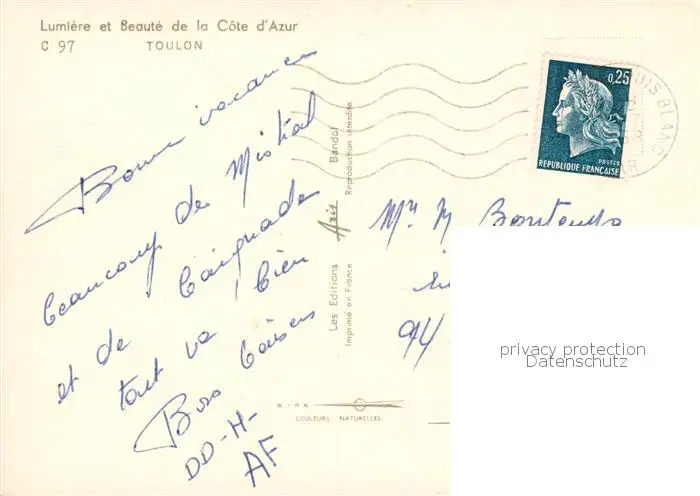 Lumière et Beauté de la Côte d'Azur
C 97 TOULON
Bonne vacances
beaucoup de Mistral
et de baignades
tout va bien
Bons baisers
DD-H-
AF
Les Editions Azis Bandol
Imprimé en France Reproduction interdite
COULEURS NATURELLES
0,25
POSTES
REPUBLIQUE FRANÇAISE
UIS BLANC
Mr M
94
privacy protection
Datenschutz